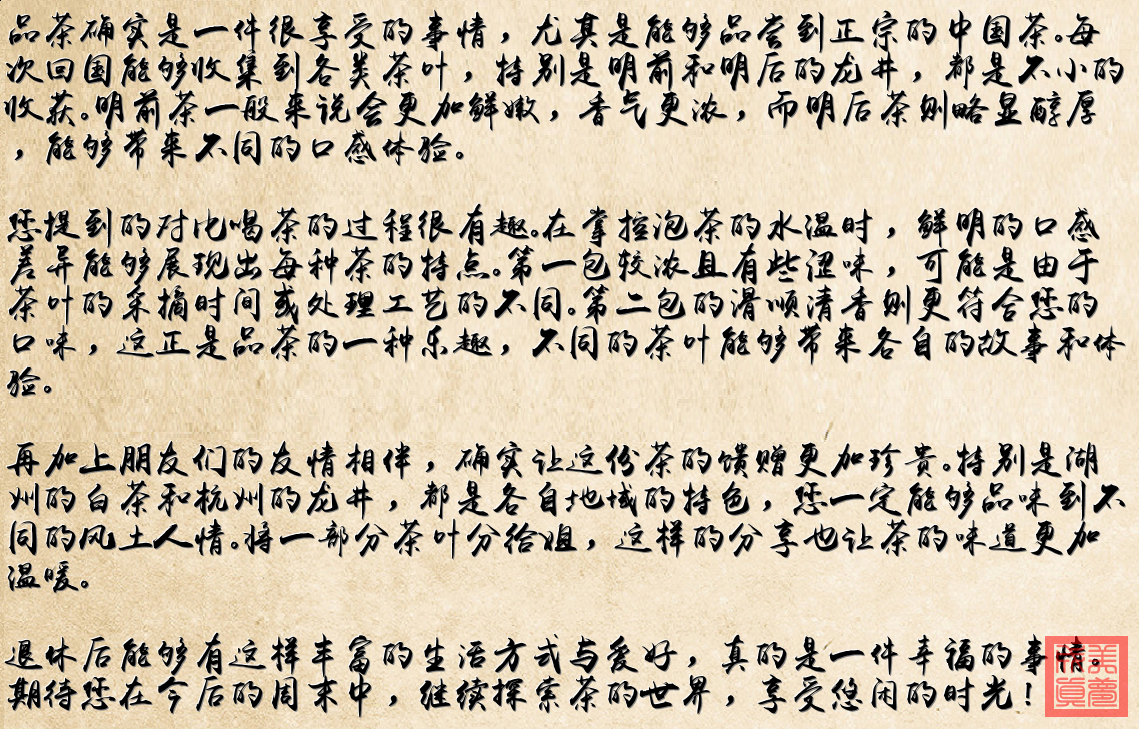 品茶确实是一件很享受的事情，尤其是能够品尝到正宗的中国茶。每
次回国能够收集到各类茶叶，特别是明前和明后的龙井，都是不小的
收获。明前茶一般来说会更加鲜嫩，香气更浓，而明后茶则略显醇厚
，能够带来不同的口感体验。
您提到的对比喝茶的过程很有趣。在掌控泡茶的水温时，鲜明的口感
差异能够展现出每种茶的特点。第一包较浓且有些涩味，可能是由于
茶叶的采摘时间或处理工艺的不同。第二包的滑顺清香则更符合您的
口味，这正是品茶的一种乐趣，不同的茶叶能够带来各自的故事和体
验。
再加上朋友们的友情相伴，确实让这份茶的馈赠更加珍贵。特别是湖
州的白茶和杭州的龙井，都是各自地域的特色，您一定能够品味到不
同的风土人情。将一部分茶叶分给姐，这样的分享也让茶的味道更加
温暖。
退休后能够有这样丰富的生活方式与爱好，真的是一件幸福的事情。
期待您在今后的周末中，继续探索茶的世界，享受悠闲的时光！